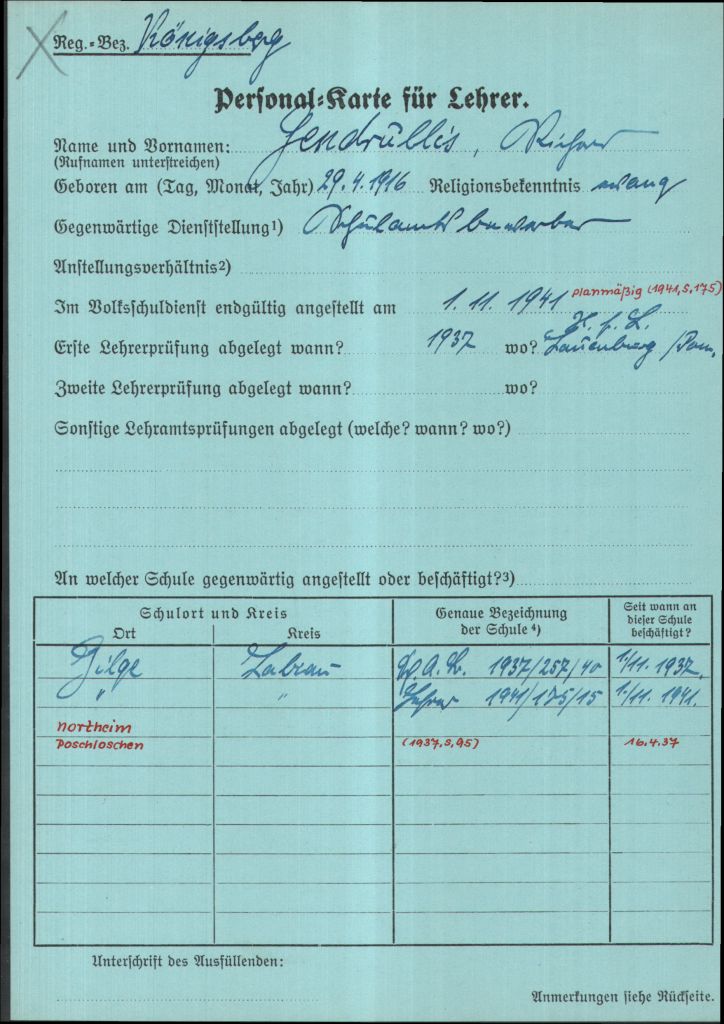 Reg.=Bez. Königsberg
Personal=Karte für Lehrer.
Name und Vornamen: Gendrullis, Richard
(Rufnamen unterstreichen)
Geboren am (Tag, Monat, Jahr) 29.4.1916 Religionsbekenntnis evang
Gegenwärtige Dienststellung¹) Schulamtsbewerber
Anstellungsverhältnis²)
Im Volksschuldienst endgültig angestellt am 1.11.1941 planmäßig (1941, S. 175)
H. f. L.
Erste Lehrerprüfung abgelegt wann? 1937 wo? Lauenburg /Pom.
Zweite Lehrerprüfung abgelegt wann? wo?
Sonstige Lehramtsprüfungen abgelegt (welche? wann? wo?)
An welcher Schule gegenwärtig angestellt oder beschäftigt?³)
Schulort und Kreis Genaue Bezeichnung der Schule ⁴) Seit wann an dieser Schule beschäftigt?
Ort Kreis
Gilge Labiau 1937/257/40 1./11. 1937.
" " Lehrer 1941/175/15 1./11. 1941.
Northeim
Poschloschen (1937, S. 95) 16.4.37
Unterschrift des Ausfüllenden:
Anmerkungen siehe Rückseite.